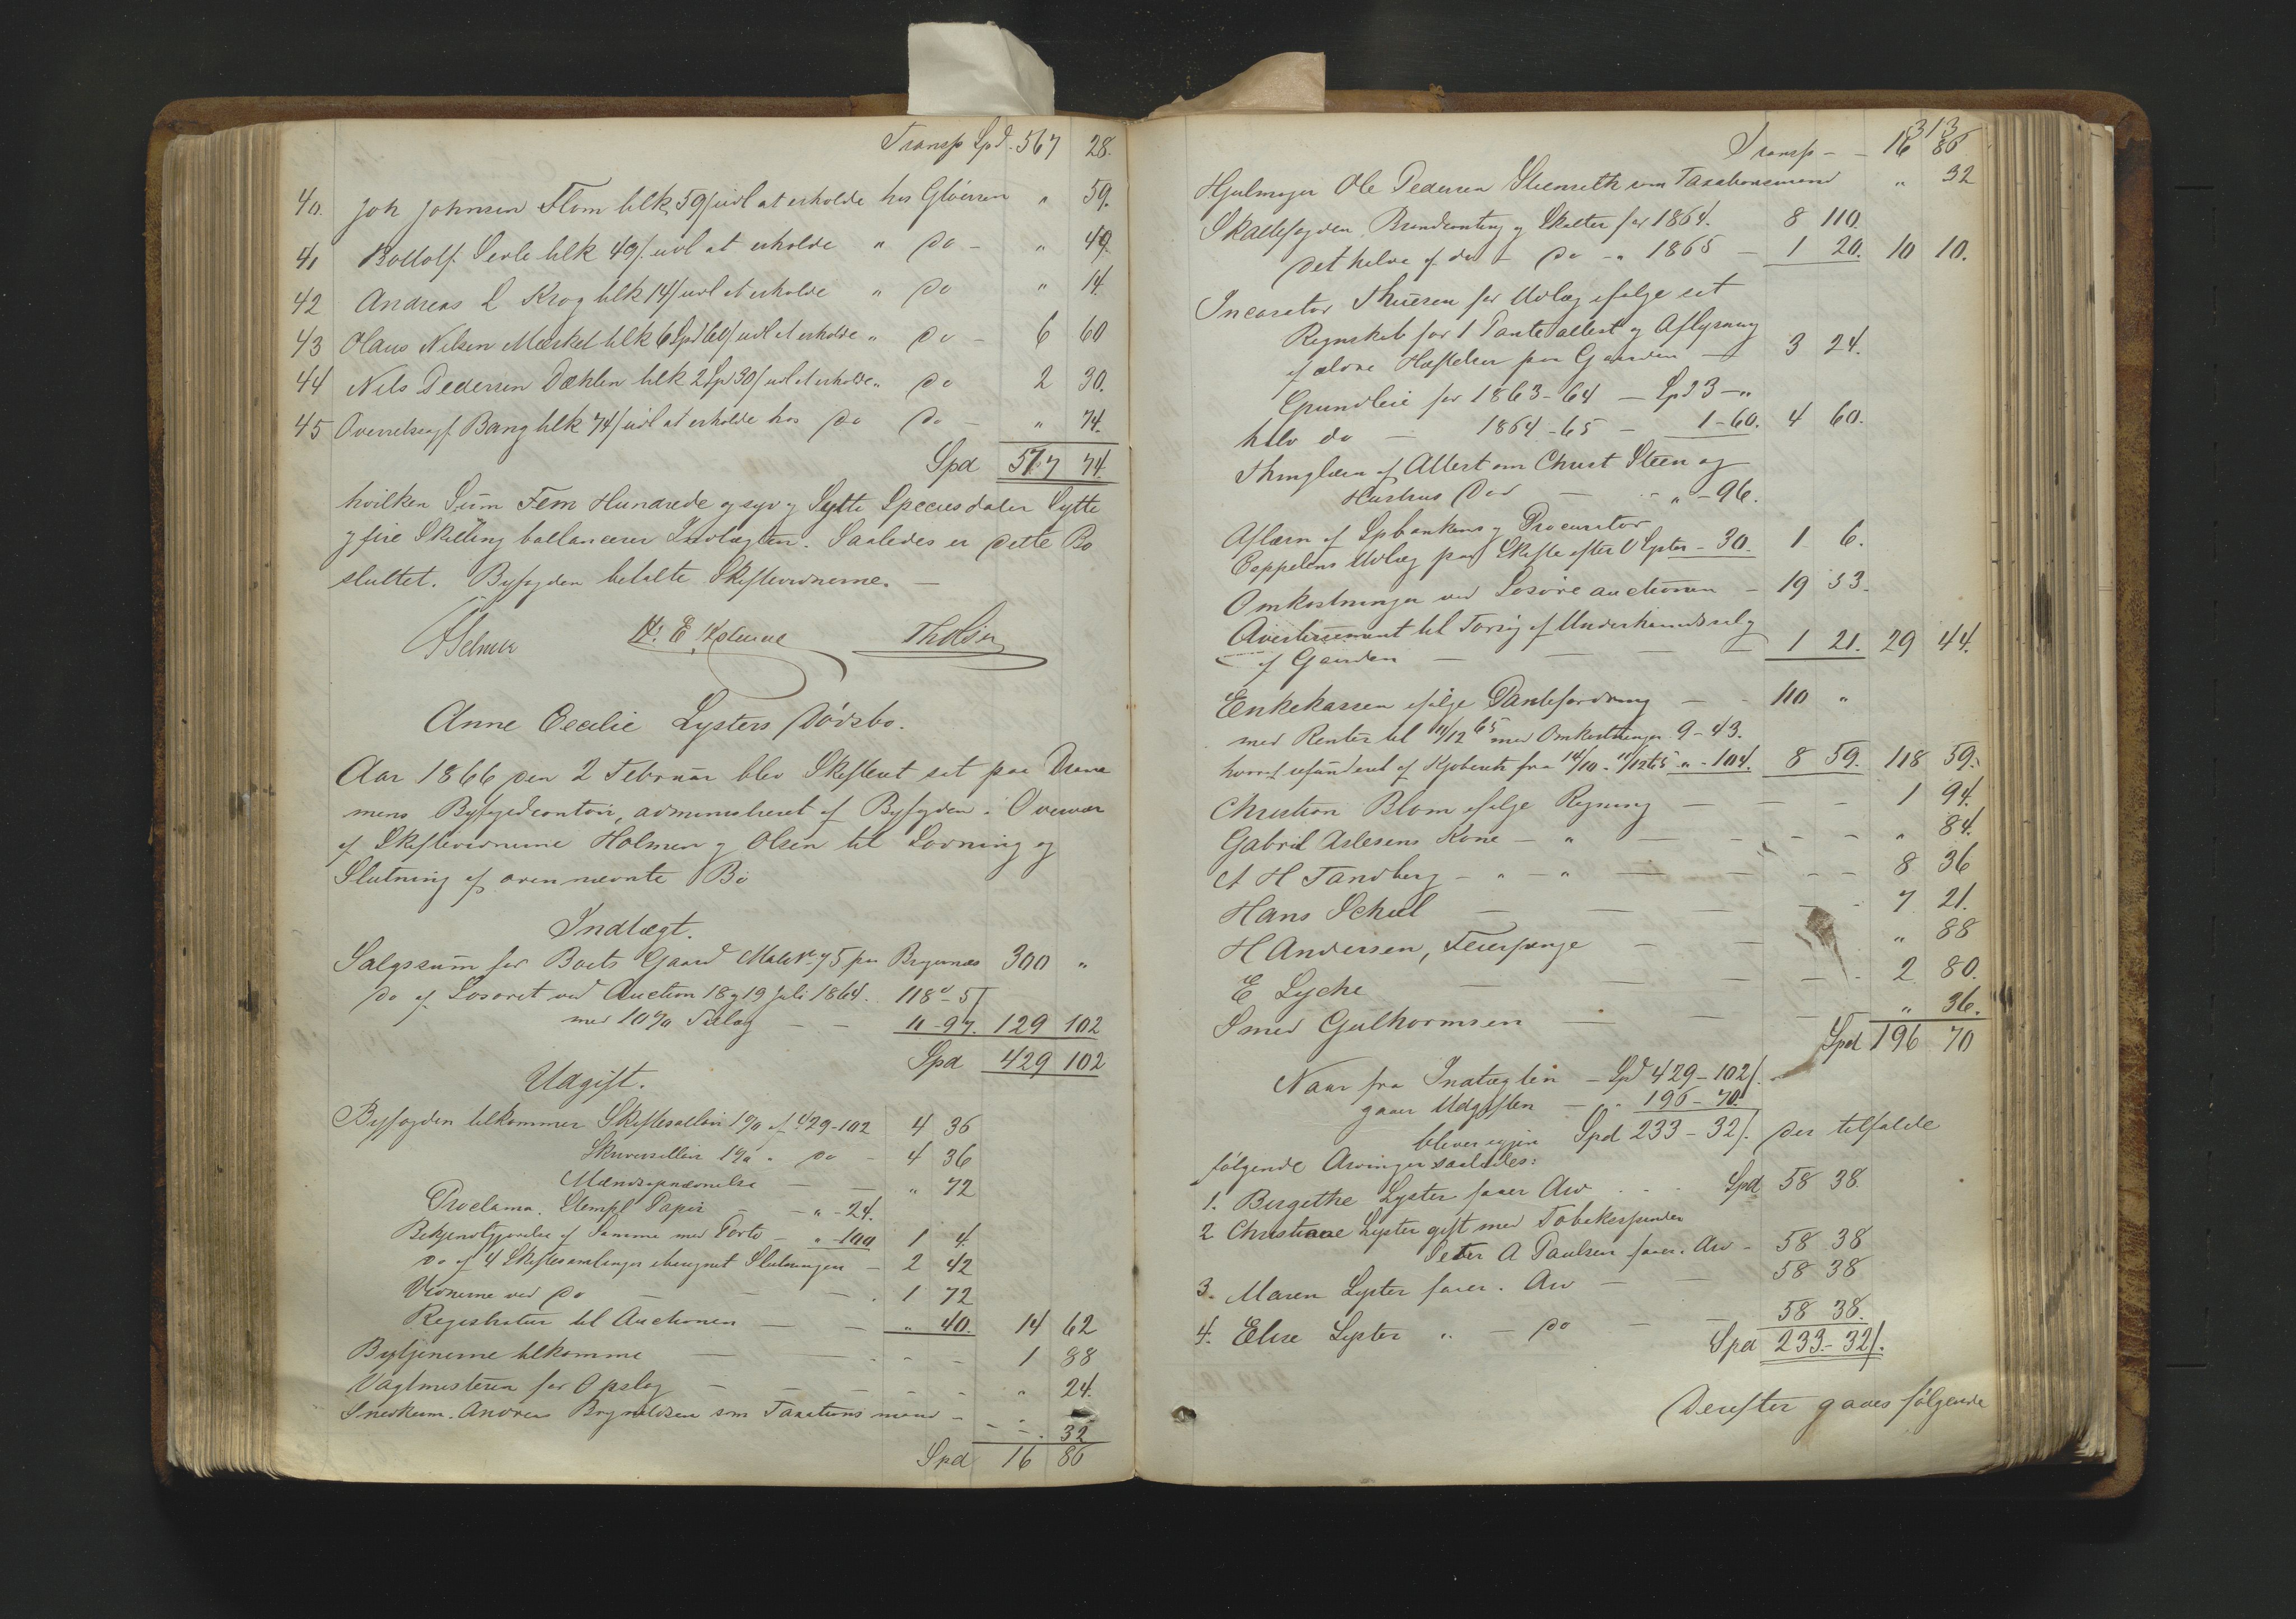 Transp Spd. 567 28.
40. Joh Johnsen Flom tilk. 59/ udl at erholde hos Gløersen " 59.
41 Botolf Sevle tilk 49/ udl at erholde " Do - " 49.
42 Andreas L Krog tilk 14/ udl at erholde " Do " 14.
43 Olaus Nilsen Mærket tilk 6 Spd 60/ udl at erholde " Do - 6 60
44 Nils Pedersen Dæhlen tilk 2 Spd 30/ udl at erholde " Do 2 30.
45 Overretssagf. Bang tilk 74/ udl at erholde hos Do Do - " 74.
Spd 577 74.
hvilken Sum Fem Hundrede og syv og Sytti Speciesdaler Sytte
og fire Skilling ballancerer Indtægten. Saaledes er dette Bo
sluttet. Byfogden betalte Skiftevidnerne. —
Anne Cecilie Lysters Dødsbo.
Aar 1866 den 2 Februar blev Skifteret sat paa Dram
mens Byfogedcontoir, administreret af Byfogden i Overvær
af Skiftevidnerne Holmen og Olsen til Lovning og
Slutning af ovennævnte Bo
Indtægt.
Salgssum for Boets Gaard Matr No 75 paa Bragernæs 300 "
Do af Løsøret ved Auction 18 og 19 Juli 1864. 118 - 5/
med 10% Tillæg — — 11-97. 129 102
Spd 429 102
Udgift.
Byfogden tilkommer Skiftesallair 1% af 429-102 4 36
Skriversallair 1% " Do - 4 36
Mændsopnævnelse — — " 72
Proclama. Stempl Papir - - " - 24.
Bekjendtgjørelse af Samme med Porto - " - 100 1 4.
Do af 4 Skiftesamlinger iberegnet Slutningen - 2 42
Vidnerne ved Do — — — 1 72
Registratur til Auctionen — — " 40. 14 62
Bytjenerne tilkomme — - - - 1 88
Vagtmesteren for Opslag — — - - - " 24.
Snedkerm. Andreas Brynildsen som Taxationsmand - - - . 32
Spd 16 86
313
Transp - - 16 86
Hjulmager Ole Pedersen Steenseth som Taxationsmand " 32
Skattefogden, Brandconting og Skatter for 1864. 8 110.
Det halve af do - Do - " 1865 — 1 20. 10 10.
Incasator Thuesen for Udlæg ifølge sit
Regnskab for 1 Panteattest og Aflysning
af ældre Hæftelser paa Gaarden — 3 24.
Grundleie for 1863-64 — Spd 3 - "
halv do — 1864-65 — 1-60. 4 60.
Thinglæsn af Attest om Christ Steen og
Hustrus Død — - " - 96.
Aflæsn af Spbankens og Procurator
Coppelens Udlæg paa Skifte efter O Lyster - 30. 1 6.
Omkostninger ved Løsøreauctionen - 19 33.
Avertissement til Forsøg af Underhaandssalg
af Gaarden — — — 1 21. 29 44.
Enkekassen ifølge Pantefordring — - 110 "
med Renter til 11/12 65 med Omkostninger 9-43.
hvoraf refunderet af Kjøberen fra 14/10 - 11/12 65 " - 104. 8 59. 118 59.
Christian Blom ifølge Regning — — - 1 94.
Gabriel Aslesens Kone - " — - - - " 84.
A H Tandberg - " - " — — - - 8 36
Hans Schiel — — — - 7 21.
H Andersen, Feiersvenge — — " 88
E Lyche — — — - 2 80.
Smed Gulhormsen — — — " 36.
Spd 196 70
Naar fra Indtægten - Spd 429-102/.
gaaer Udgiften — " 196-70.
bliver igjen Spd 233-32/. der tilfalde
følgende Arvinger saaledes:
1. Birgithe Lyster faaer Arv . . . Spd 58 38.
2 Christiane Lyster gift med Tobakkspinder
Peter A Paulsen faaer. Arv - 58 38
3. Maren Lyster faaer. Arv — — 58 38
4. Elise Lyster " - Do — — 58 38.
Spd 233-32/.
Derefter gaves følgende